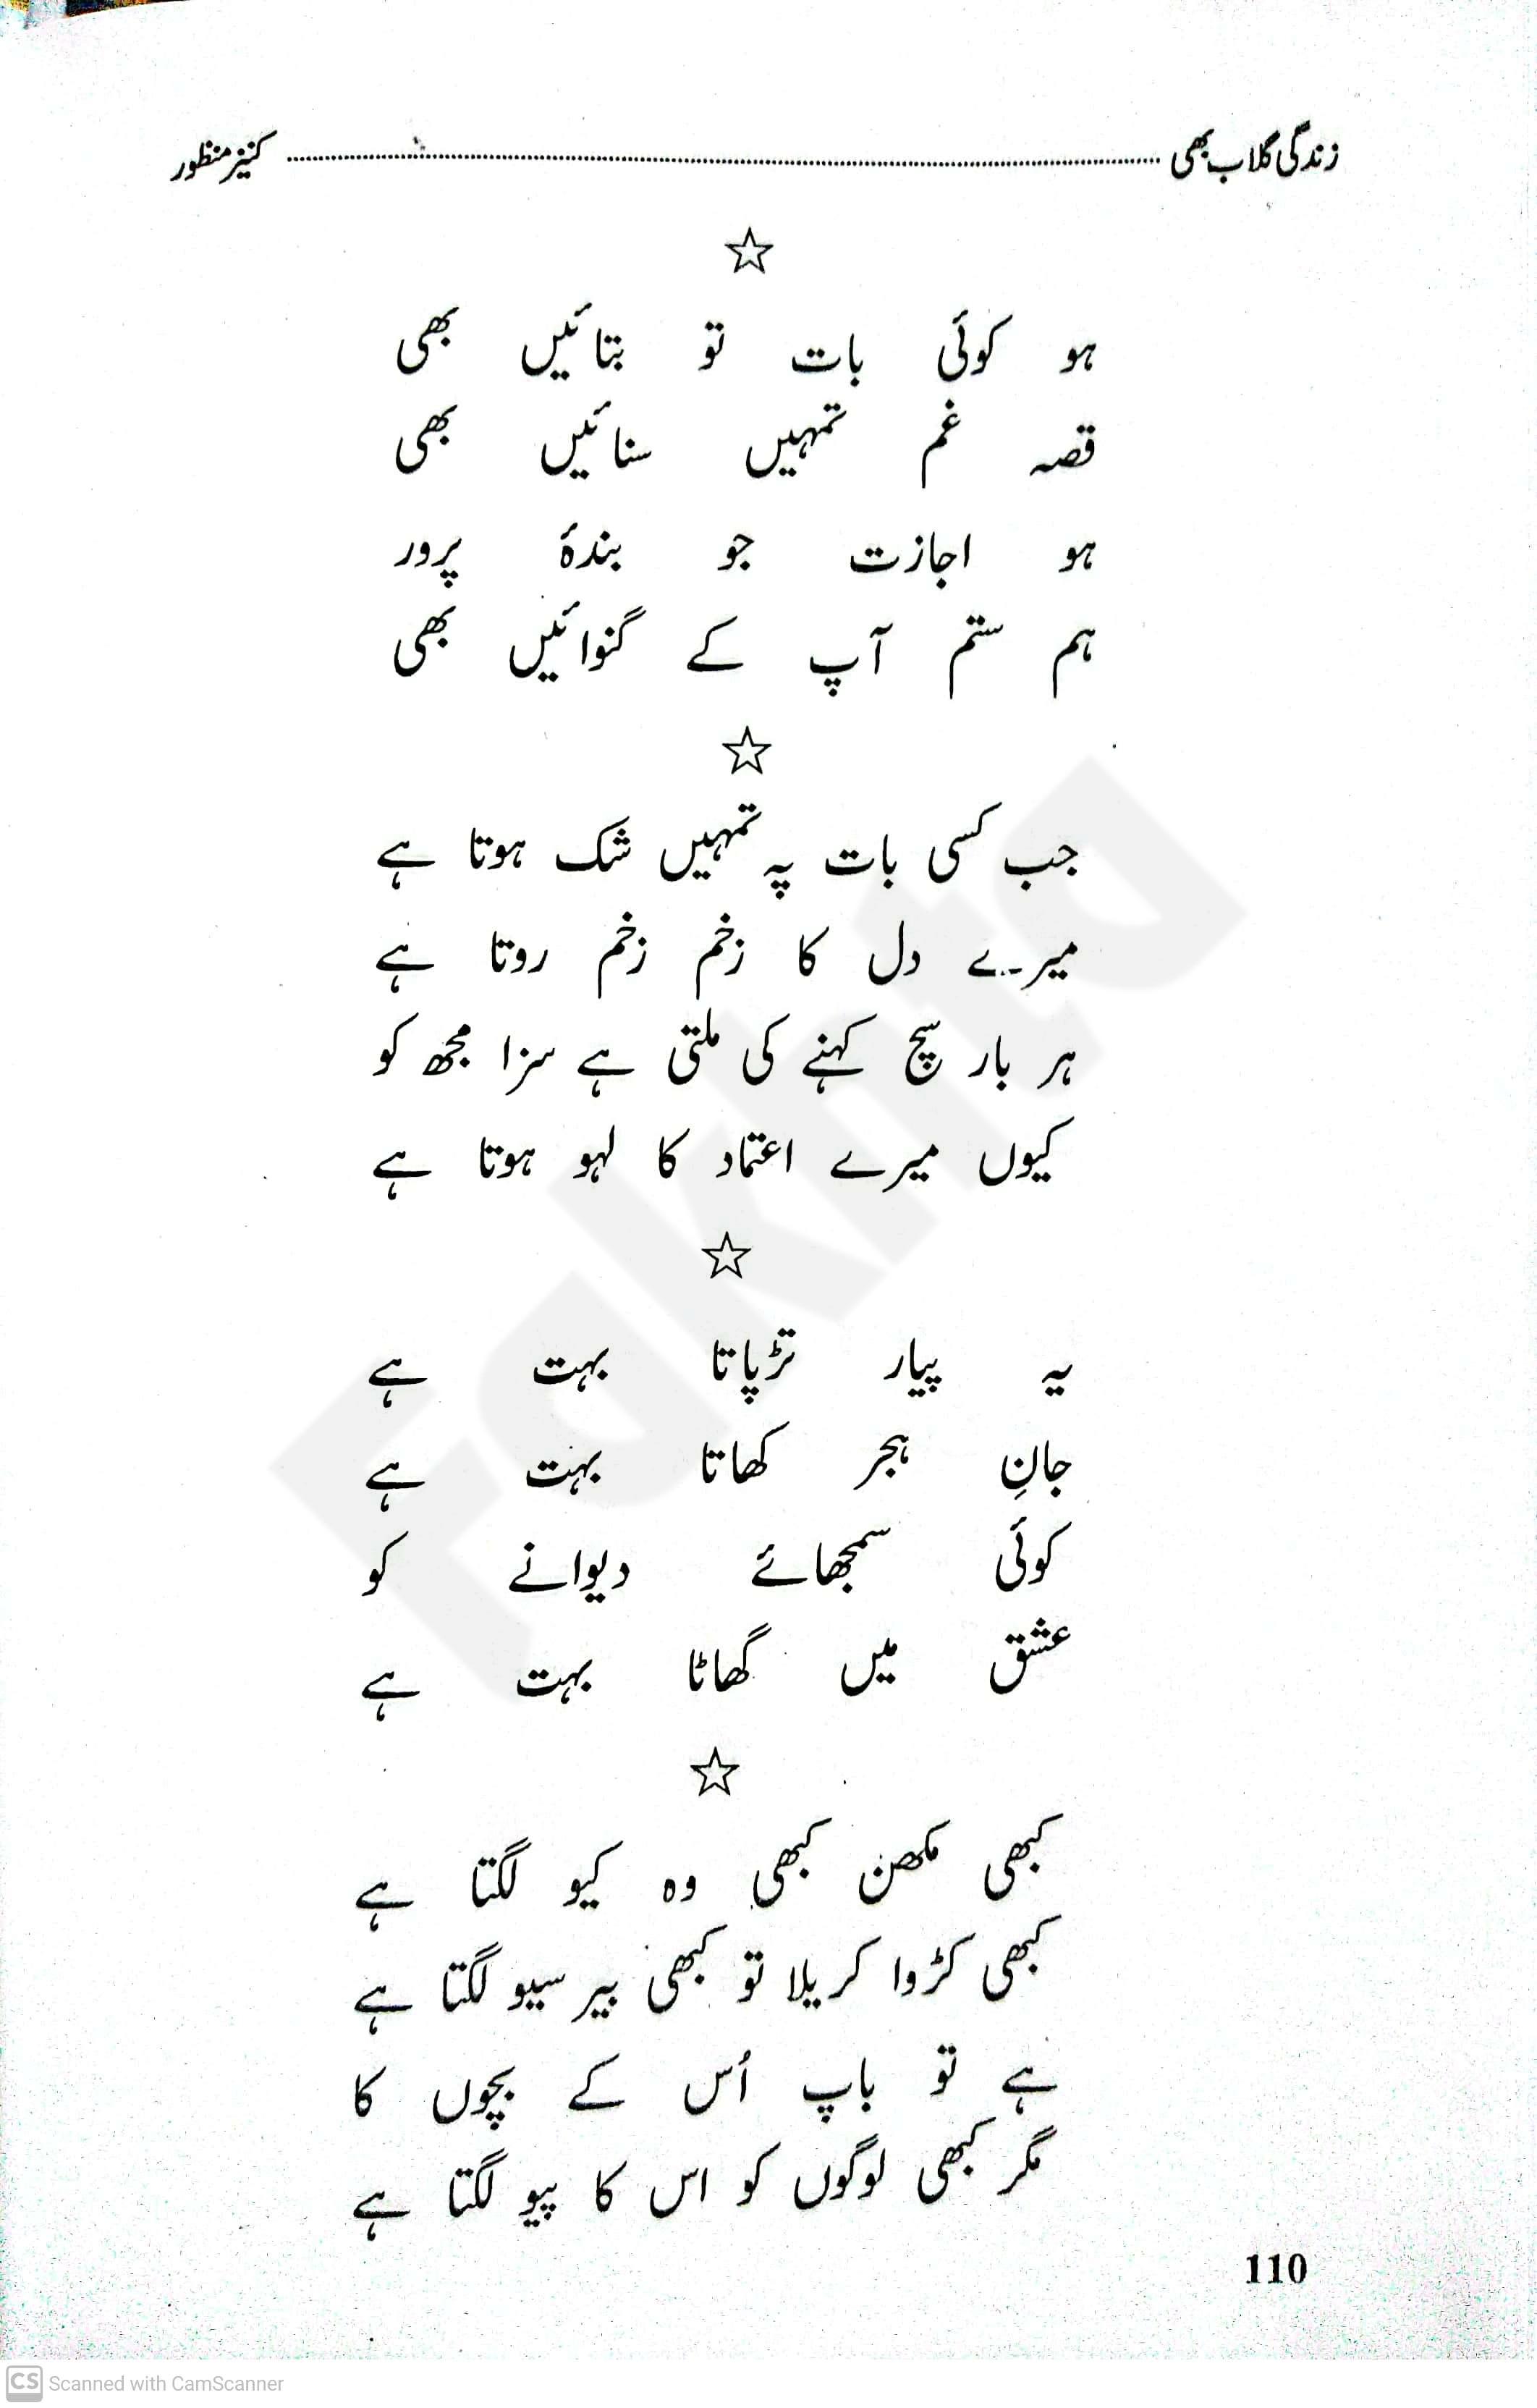 زندگی گلاب بھی ........ کنیز منظور
☆
ہو کوئی بات تو بتائیں بھی
قصہ غم تمہیں سنائیں بھی
ہو اجازت جو بندۂ پرور
ہم ستم آپ کے گنوائیں بھی
☆
جب کسی بات پہ تمہیں شک ہوتا ہے
میرے دل کا زخم زخم روتا ہے
ہر بار سچ کہنے کی ملتی ہے سزا مجھ کو
کیوں میرے اعتماد کا لہو ہوتا ہے
☆
یہ پیار تڑپاتا بہت ہے
جانِ ہجر کھاتا بہت ہے
کوئی سمجھائے دیوانے کو
عشق میں گھاٹا بہت ہے
☆
کبھی مکھن کبھی وہ کیو لگتا ہے
کبھی کڑوا کریلا تو کبھی بیر سیو لگتا ہے
ہے تو باپ اُس کے بچوں کا
مگر کبھی لوگوں کو اس کا پیو لگتا ہے
110
Fakhta
CS Scanned with CamScanner